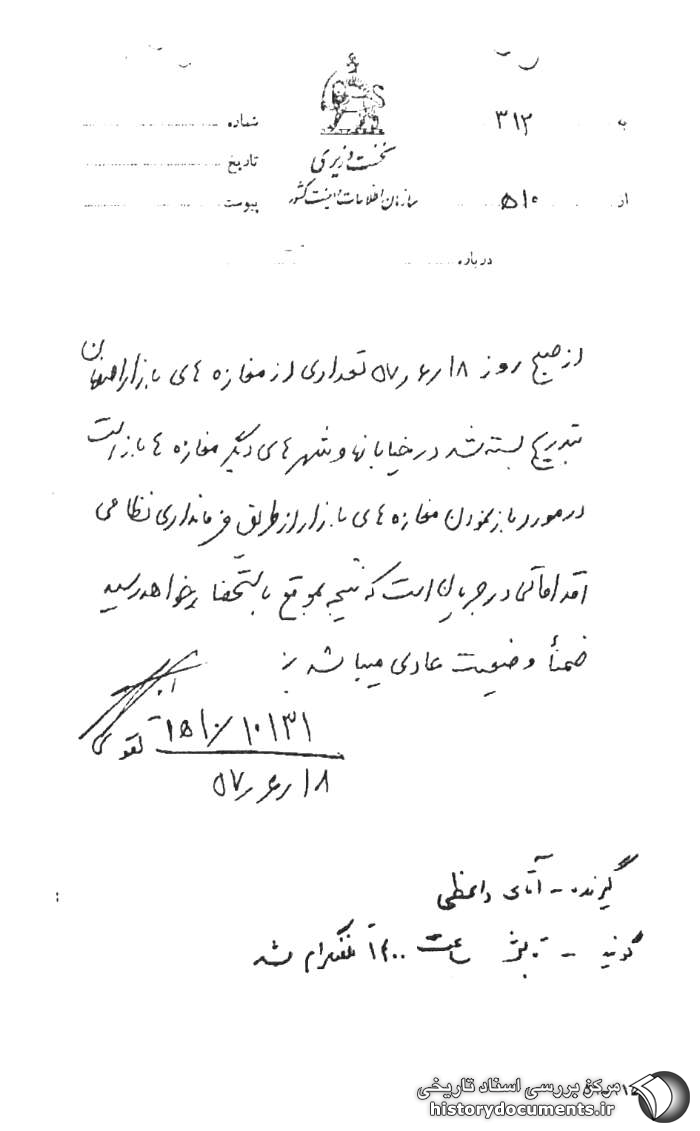 به ۳۱۲
شماره
نخست وزیری
تاریخ
سازمان اطلاعات و امنیت کشور
از ۵۱۰
پیوست
درباره
از صبح روز ۱۸ر۶ر۵۷ تعدادی از مغازه های بازار اصفهان
بتدریج بسته شد در خیابانها و شهرهای دیگر مغازه ها باز است
در مورد باز نمودن مغازه های بازار از طریق فرمانداری نظامی
اقداماتی در جریان است که نتیجه بموقع باستحضار خواهد رسید
ضمناً وضعیت عادی میباشد
۱۵۱۰/۱۰۱۳۱
تقوی
۱۸ر۶ر۵۷
گیرنده - آقای واعظی
گوینده - ساعت ۱۴۰۰ تلگرام شد
مرکز بررسی اسناد تاریخی
historydocuments.ir